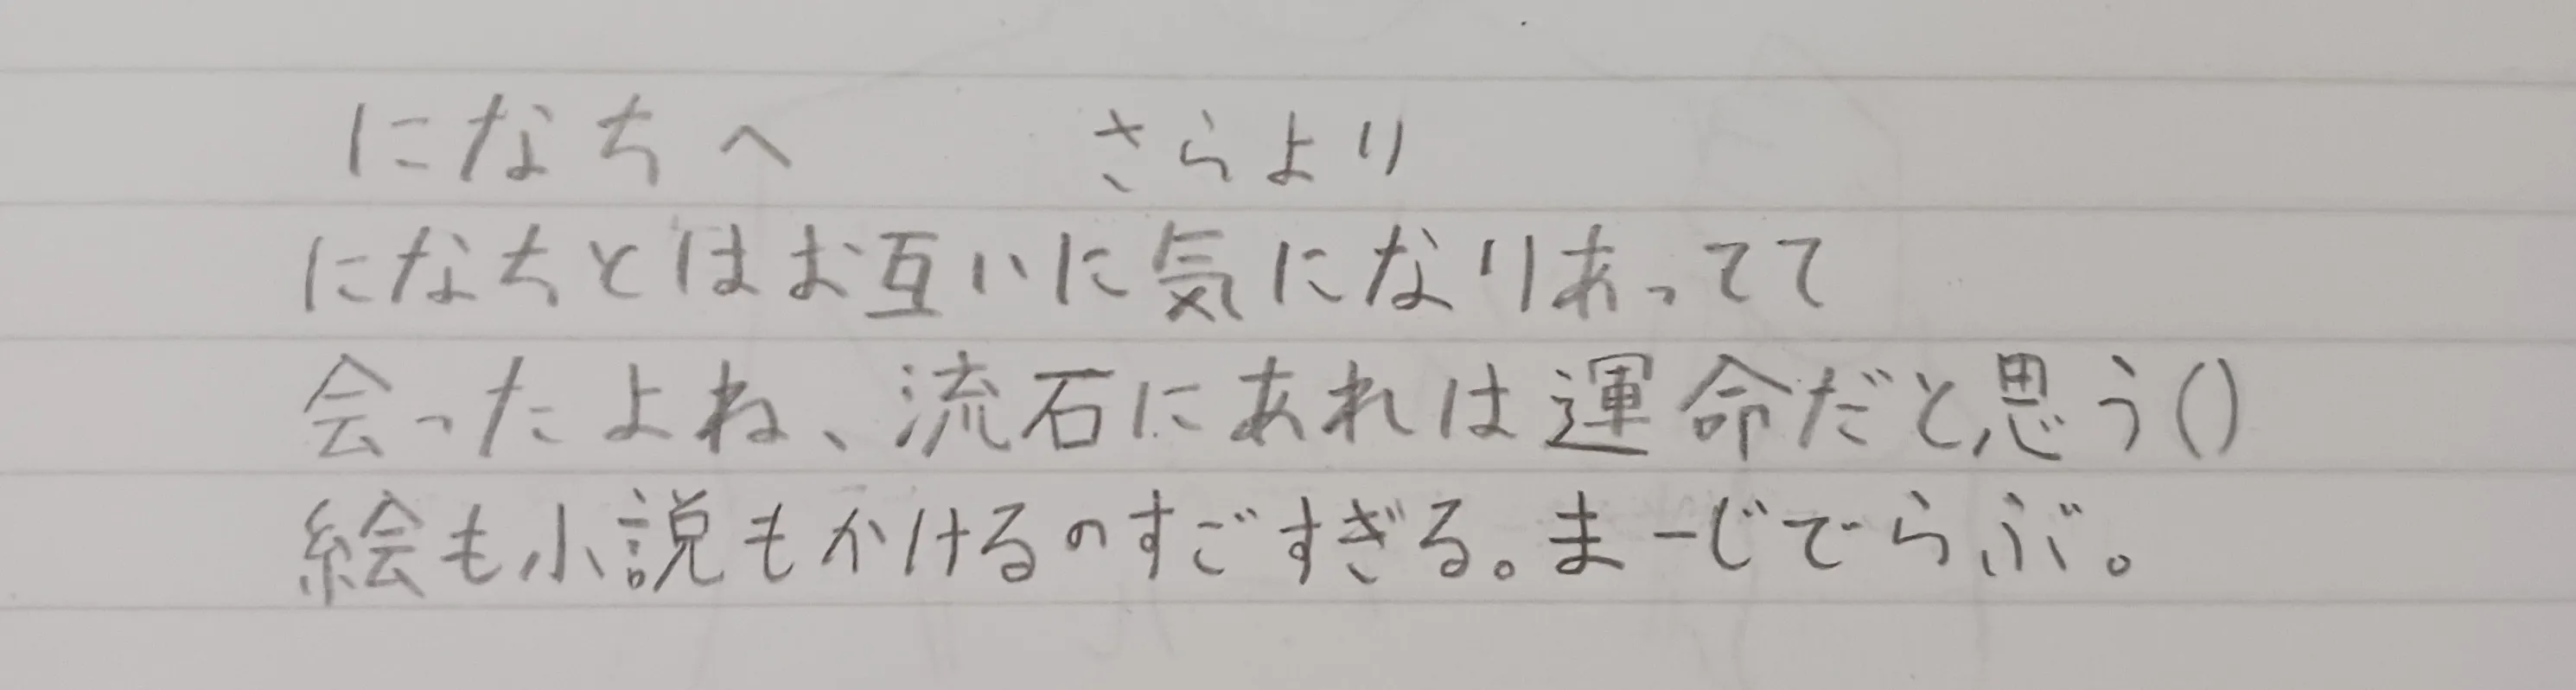 になちへ　さらより
になちとはお互いに気になりあってて
会ったよね、流石にあれは運命だと思う()
絵も小説もかけるのすごすぎる。まーじでらぶ。